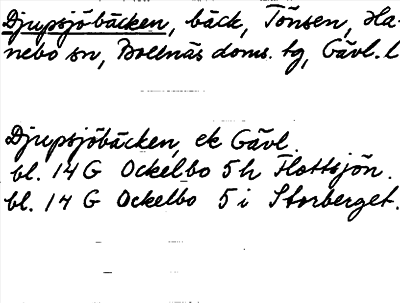 Djupsjöbäcken, bäck, Tönsen, Ha-
nebo sn, Bollnäs doms. tg, Gävl. l
Djupsjöbäcken, ek Gävl.
bl. 14 G Ockelbo 5 h Flottsjön.
bl. 14 G Ockelbo 5 i Storberget.